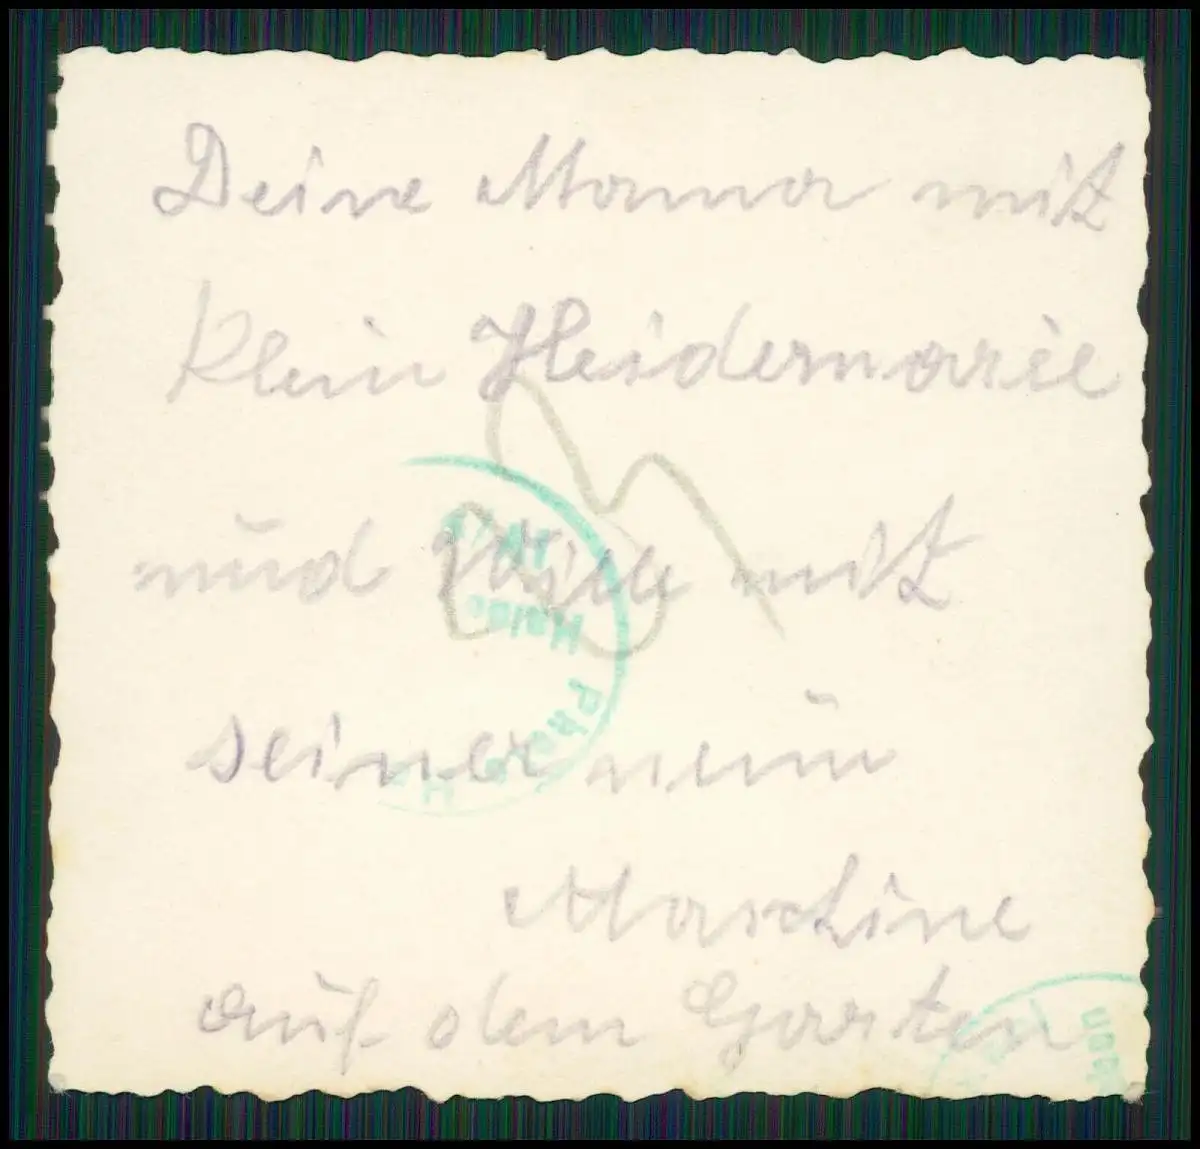 Deine Mama mit
klein Heidemarie
und mit
seiner
Maschine
auf dem Garten